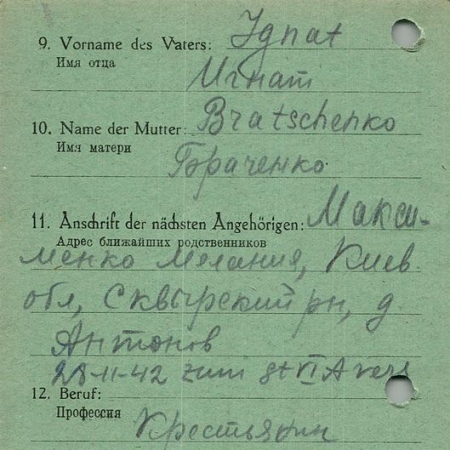 9. Vorname des Vaters: Ignat
Имя отца
Игнат
10. Name der Mutter: Bratschenko
Имя матери
Браченко
11. Anschrift der nächsten Angehörigen: Макси-
Адрес ближайших родственников
менко Мелания, Киев
обл, Сквырский рн, д
Антонов
28-11-42 zum St VI A vers
12. Beruf:
Профессия
Крестьянин